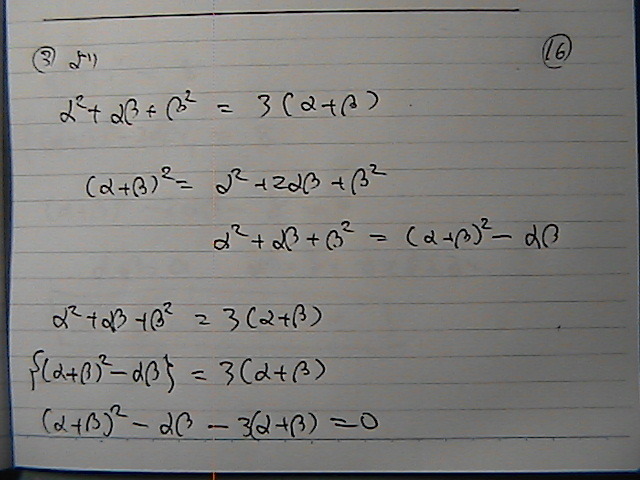 ③ より ⑯
α²+αβ+β² = 3(α+β)
(α+β)² = α²+2αβ+β²
α²+αβ+β² = (α+β)²-αβ
α²+αβ+β² = 3(α+β)
{(α+β)²-αβ} = 3(α+β)
(α+β)²-αβ-3(α+β)=0